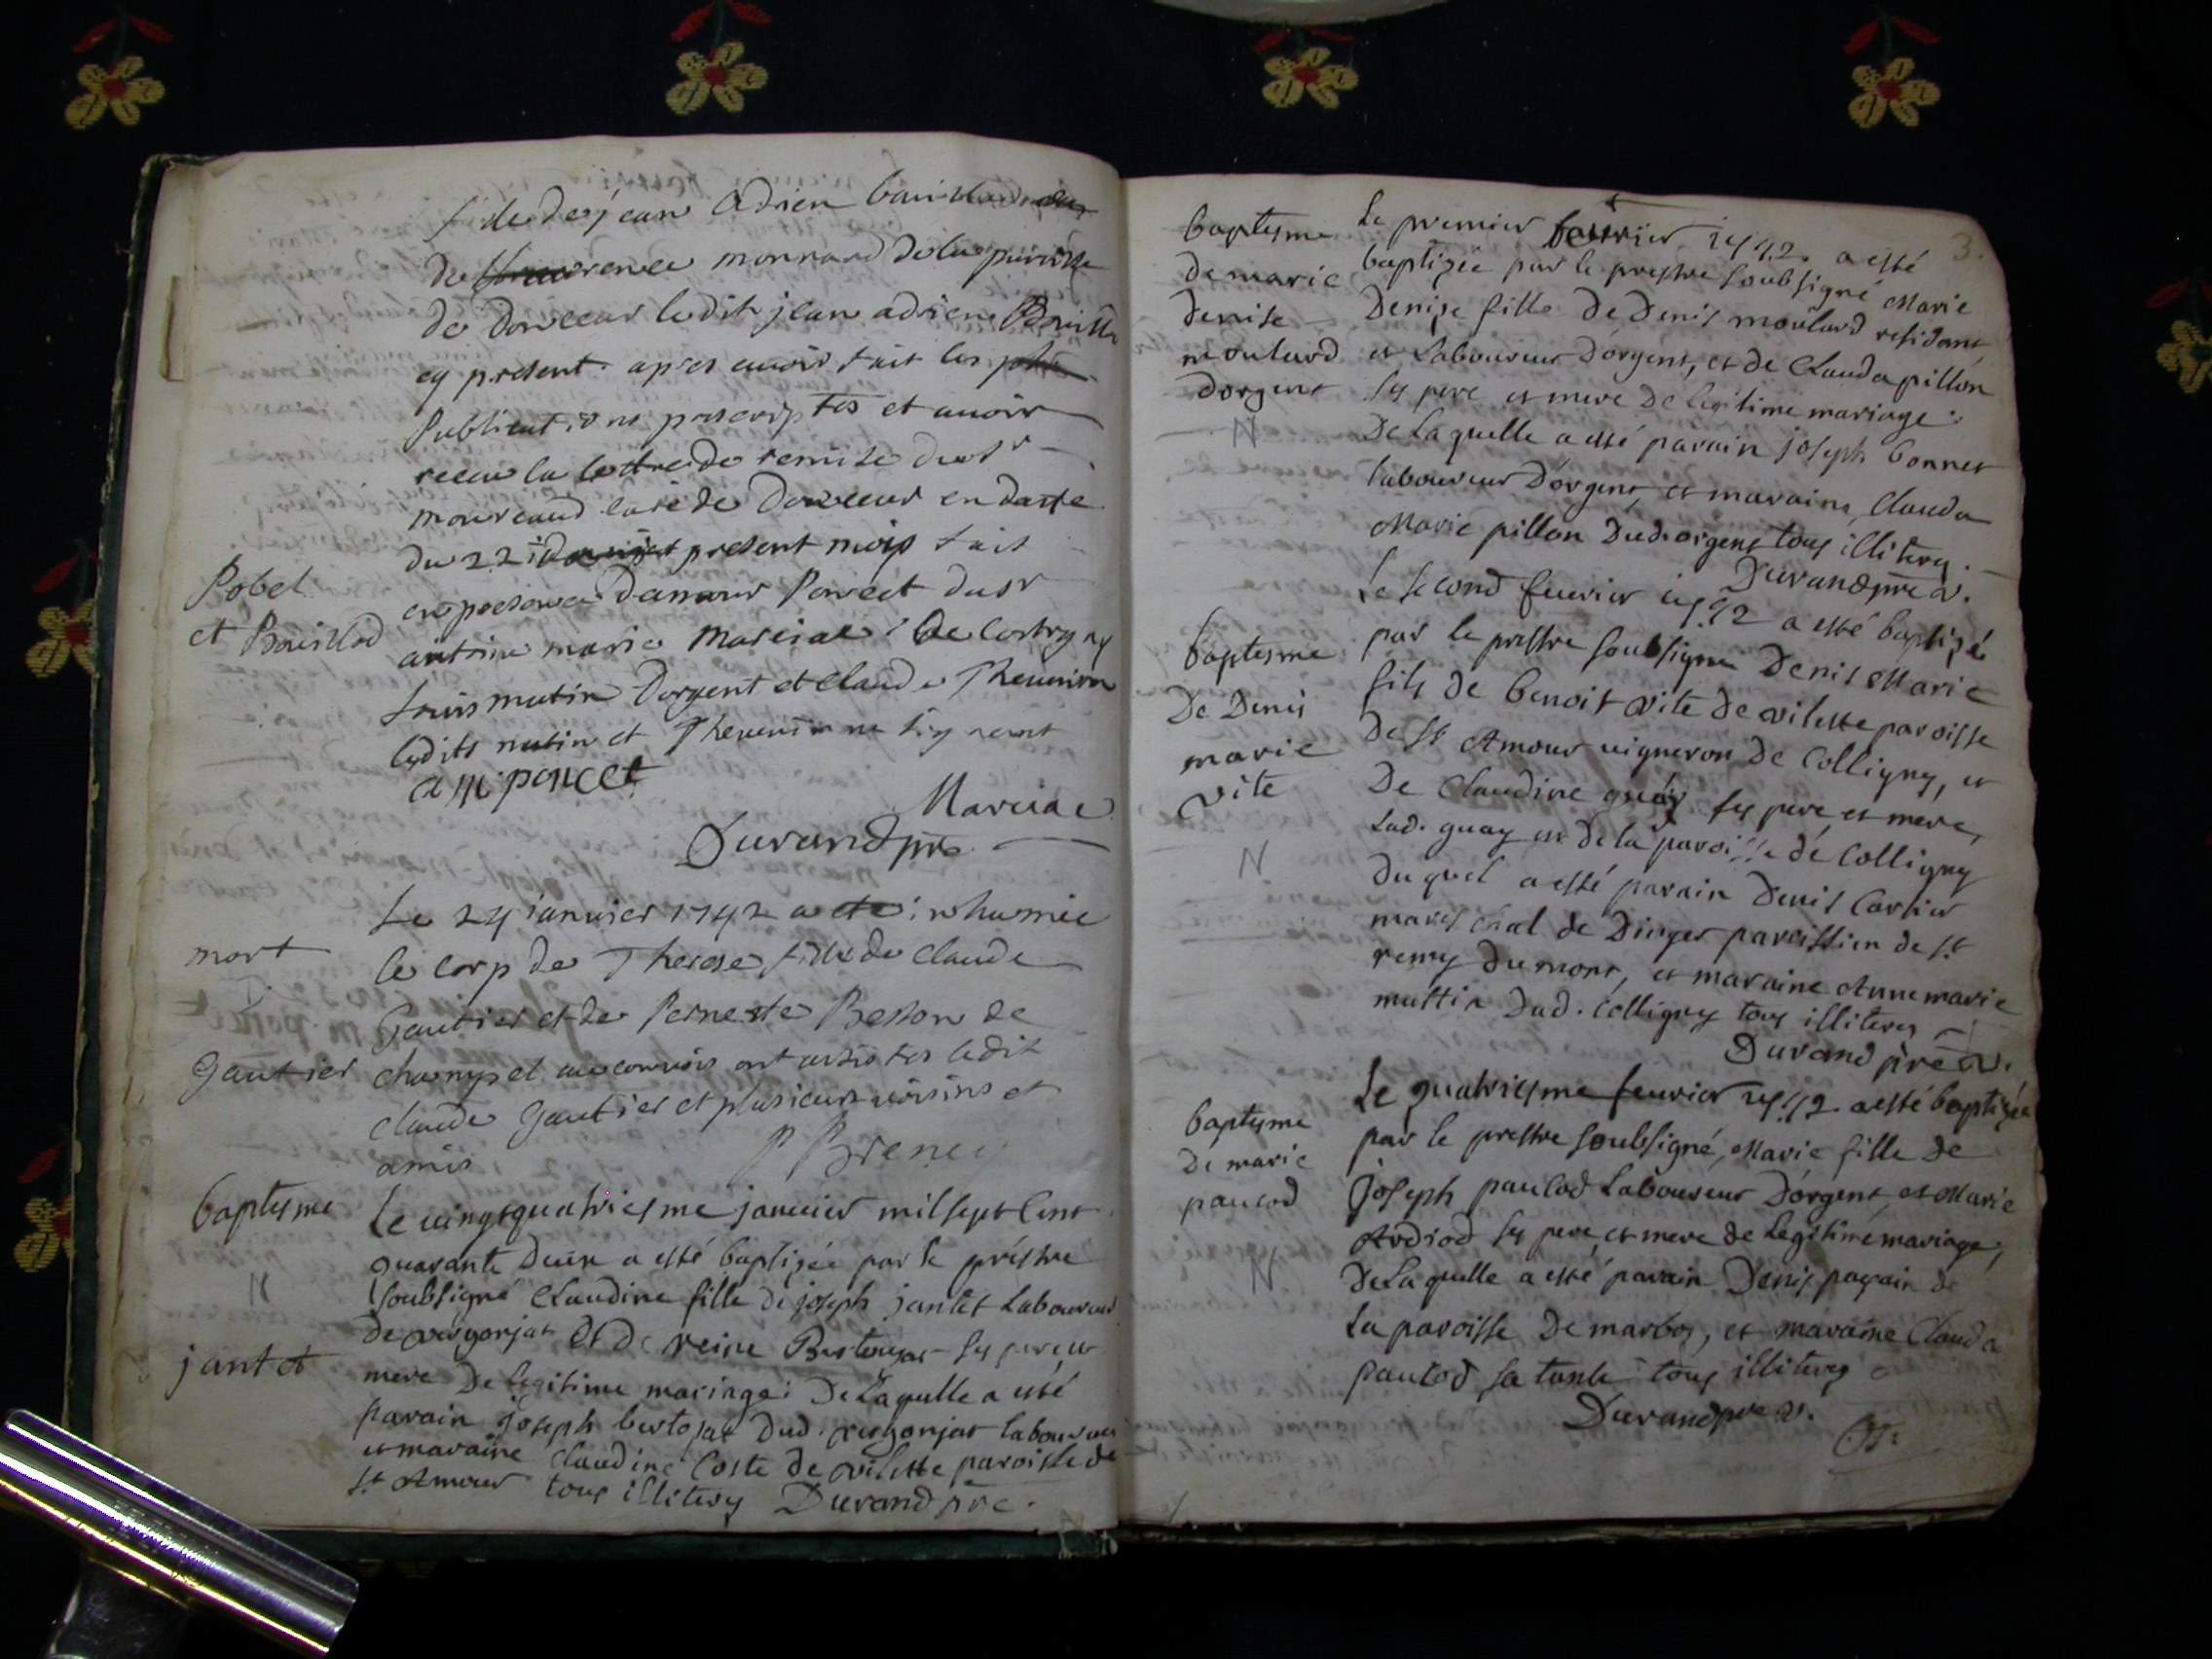 fille de jean Adrien
de monnard de la paroisse
de Domceur ledit jean adrien
cy present apres avoir fait les
Publications prescriptes et avoir
receu la lettre de remise du sr
curé de en datte
du 22 present mois fait
Pobel
et Bouillod
en presence damour Poncet du sr
antoine marie Marciae
Louis mutin Dorgent et claude Thevenin
lesdits mutin et Thevenin ne signent
a m poncet
Marciae
Durand pre
mort
Gautier
Le 24 ianvier 1742 a ete inhumée
le corp de Therese fille de claude
Gautier et de Pernette Besson de
et au convois ont assistes ledit
claude Gautier et plusieurs voisins et
amis P Breney
baptesme
N
jantet
Le vingtquatriesme janvier mil sept cent
quarante deux a esté baptizée par le prestre
soubsigné Claudine fille de joseph jantet Laboureur
de vergonjat Et de reine ses pere et
mere De legitime mariage: De Laquelle a esté
parain joseph dud. vergonjat laboureur
et maraine Claudine Coste de vilette paroisse de
St Amour tous illiterez Durand pre.
3.
baptesme
de marie
denise
moulard
dorgent
N
Le premier fevrier 1742. a esté
baptizée par le prestre soubsigné Marie
Denise fille De Denis moulard residant
et Laboureur Dorgent, et de Clauda pillon
ses pere et mere De legitime mariage:
De Laquelle a esté parain joseph bonnet
laboureur Dorgent, et maraine, Clauda
Marie pillon Dud. orgent tous illiterez.
Durand pre v.
baptesme
De Denis
marie
vite
N
Le second fevrier 1742 a esté baptizé
par le prestre soubsigné Denis Marie
fils de benoit vite de vilette paroisse
De St Amour vigneron de Colligny, et
De Claudine guay ses pere et mere,
Lad. guay est de la paroisse de Colligny
Duquel a esté parain Denis
mareschal de paroissien de St
remy Dumont, et maraine Anne marie
muttin Dud. Colligny tous illiterez
Durand pre v.
baptesme
De marie
paulod
N
Le quatriesme fevrier 1742. a esté baptizée
par le prestre soubsigné, Marie fille de
Joseph paulod Laboureur Dorgent, et Marie
Ardiod ses pere et mere de Legitime mariage;
De Laquelle a esté parain Denis de
La paroisse De marboz, et maraine Clauda
paulod sa tante tous illiterez
Durand pre v.